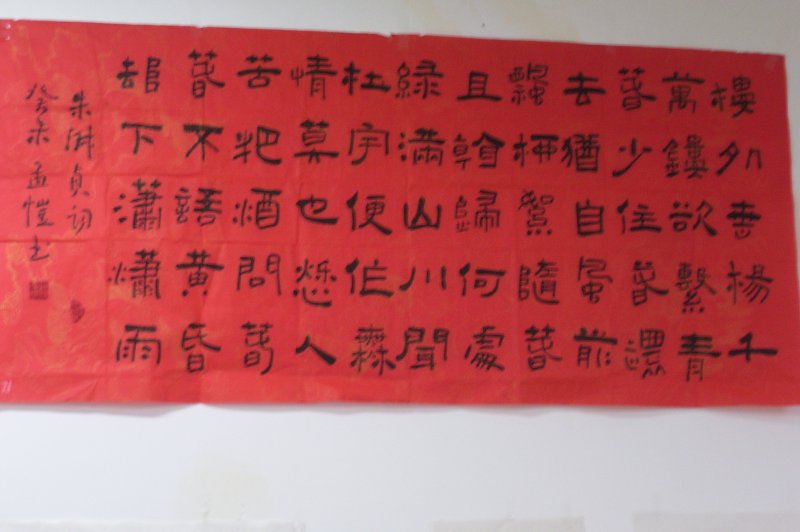 樓外垂楊千
萬縷欲繫青
春少住春還
去猶自風前
飄柳絮隨春
且看歸何處
綠滿山川聞
杜宇便作無
情莫也愁人
苦把酒問春
春不語黃昏
却下瀟瀟雨
朱淑貞詞
癸未孟愷书